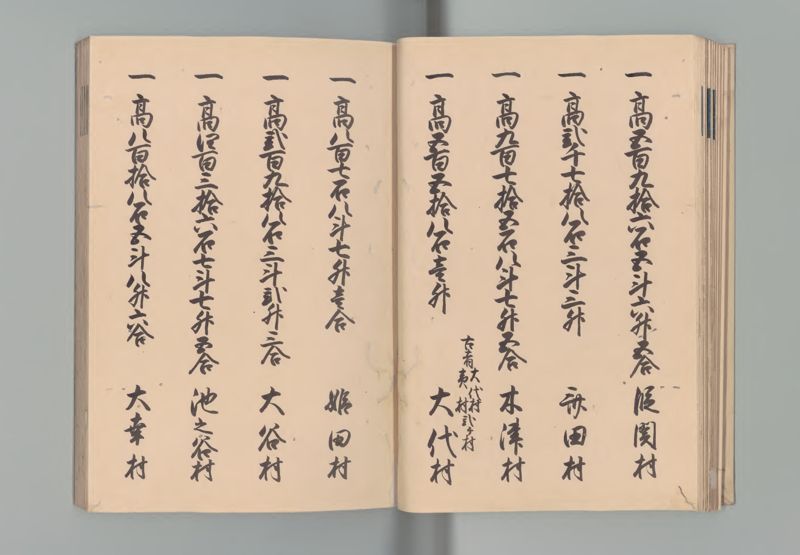 一 高五百九拾六石五斗六升五合 段関村
一 高弐千七拾八石三斗三升 斎田村
一 高九百七拾五石八斗七升五合 木津村
一 高五百五拾八石壱升 大代村
古者 大代村
夷村 弐ヶ村
一 高八百七石八斗七升壱合 姫田村
一 高弐百九拾八石三斗弐升三合 大谷村
一 高四百三拾六石七斗七升五合 池之谷村
一 高八百拾八石五斗八升六合 大幸村